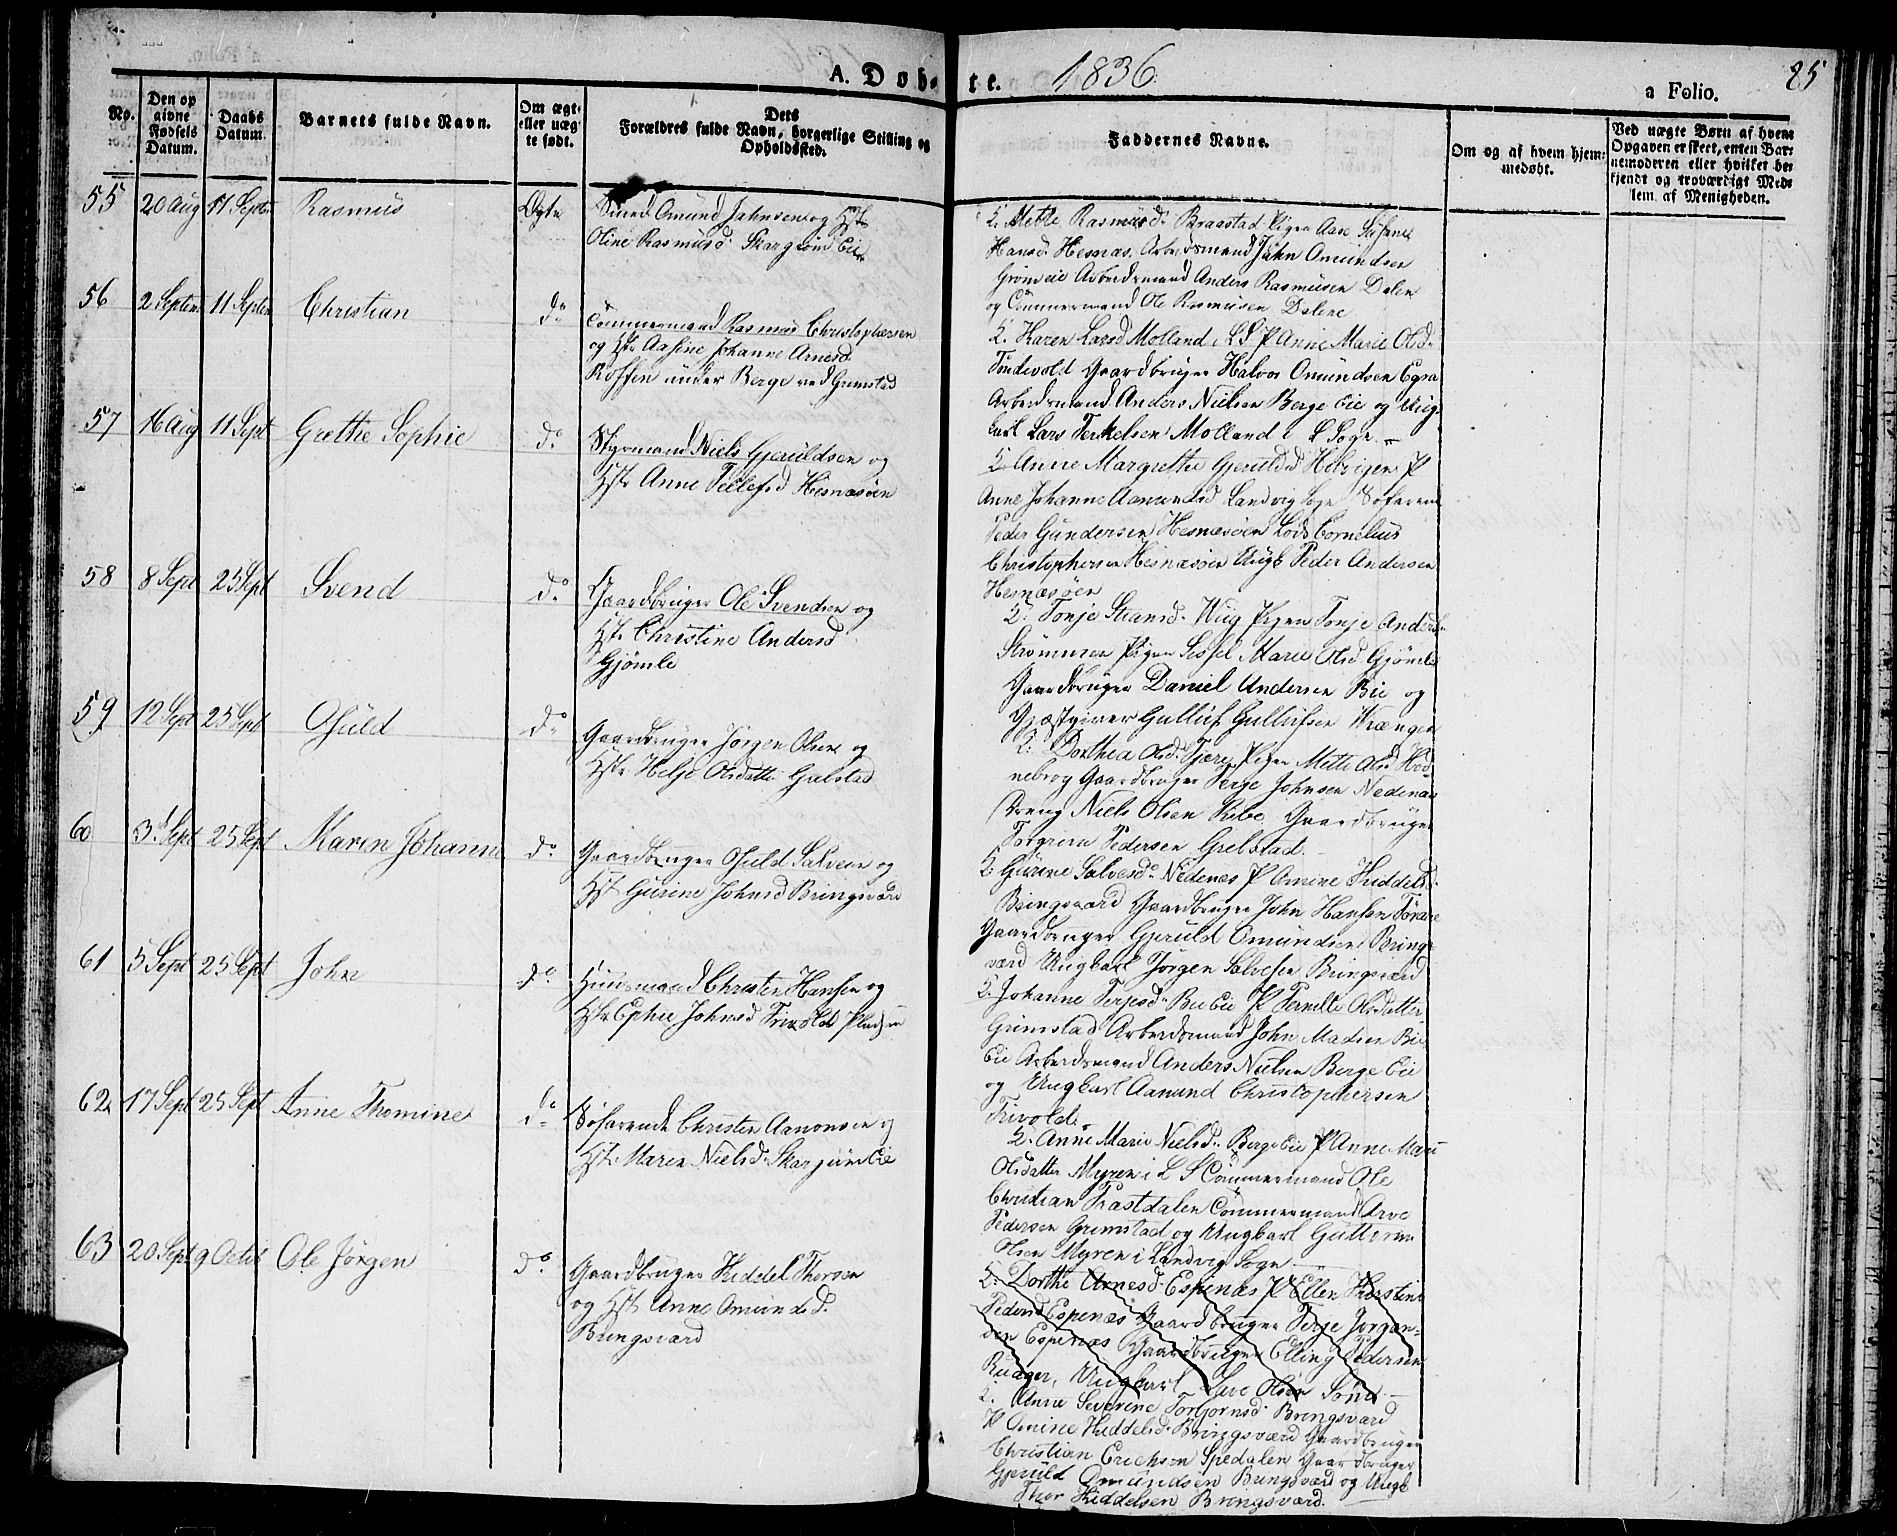 A. Døbte. 1836. 25
a Folio.
No.
Den op
givne
Fødsels
Datum.
Daabs
Datum.
Barnets fulde Navn.
Om ægte
eller uæg
te født.
Dets
Forældres fulde Navn, borgerlige Stilling og
Opholdssted.
Faddernes Navne.
Om og af hvem hjem-
medøbt.
Ved uægte Børn af hvem
Opgaven er skeet, enten Bar-
nemoderen eller hvilket be-
kjendt og troværdigt Med-
lem af Menigheden.
55 20 Aug 11 Septr Rasmus Ægte Smed Omund Jahnsen og Hst
Oline Rasmusd. Skargrøm Eie
K. Mette Rasmusd. Braastad Pigen Aase
Hansd. Hesnæs, Arbeidsmand John Omundsen
Grøm eie Arbeidsmand Anders Rasmusen Dalen
og Tømmermand Ole Rasmusen Dalene
56 2 Septem 11 Septem Christian do Tømmermand Rasmus Christophersen
og Hst Aasine Johanne Arnesd.
Roffen under Berge ved Grimstad
K. Karen Larsd Molland L S P Anne Marie Olsd.
Tøndevold Gaardbruger Halvor Omundsen Egra
Arbeidsmand Anders Nielsen Berge Eie og Ung-
karl Lars Terkelsen Molland i L Sogn.
57 16 Aug 11 Sept Grethe Sophie do Styrmand Niels Gjeruldsen og
Hst Anne Tellefsd Hesnæsøen
K Anne Margrethe Gjerulds P
Anne Johanne Aanundsd Landvig Sogn Søfarende
Peder Gundersen Hesnæsøen Lods Cornelius
Christophersen Hesnæsøen Ungk Peder Andersen
Hesnæsøen
58 8 Sept 25 Sept Svend do Gaardbruger Ole Svendsen og
Hst Christine Andersd
Gjømle
K. Tonje Pigen Tonje Andersd.
Strømmen Pigen Sissel Marie Olsd Gjømle
Gaardbruger Daniel Andersen Bie og
Gjæstgiver Gulluf Gullufsen Vrængen
59 12 Sept 25 Sept Ofuld do Gaardbruger Jørgen Olsen og
Hst Helje Olsdatter
K. Dorthea Olsd. Pigen Mette Olsd Hod-
nebrog Gaardbruger Terje Johnsen Nedenæs
Dreng Niels Olsen Ribe Gaardbruger
Torgrim Pedersen
60 3d Sept 25 Sept Maren Johanne do Gaardbruger Ofuld Salvesen og
Hst Gurine Johnsd Bringsværd
K. Gurine Salvesd. Nedenæs P Amine Kiddelsd.
Bringsværd Gaardbruger John Hansen
Gaardbruger Gjeruld Omundsen Brings-
værd Ungkarl Jørgen Salvesen Bringsværd
61 5 Sept 25 Sept John do Huusmand Christen Hansen og
Hst Ephie Johnsd Frivolds Pladsen
K. Johanne Terjesd. Bie Eie P Pernille Olsdatter
Grimstad Arbeidsmand John Madsen Bie
Eie Arbeidsmand Anders Nielsen Berge Eie
og Ungkarl Aanund Christophersen
Frivold.
62 17 Sept 25 Sept Anne Thomine do Søfarende Christen Aanonsen og
Hst Maren Nielsd. Skargrøm Eie
K. Anne Marie Nielsd. Berge Eie P Anne Marie
Olsdatter Myren i L S Tømmermand Ole
Christian Tømmermand Arve
Pedersen Grimstad og Ungkarl Guttorm
Olsen Myren i Landvig Sogn
63 20 Sept 9 Octob Ole Jørgen do Gaardbruger Kiddel Thorsen
og Hst Anne Omundsd.
Bringsværd
K. Dorthe Arnesd. Espenæs P Ellen Kirstine
Pedersd Espenæs Gaardbruger Terje Jørgen-
sen Espenæs Gaardbruger Elling Pedersen
Ungkarl Lave Olsen
K. Anne Severine Torbjørnsd. Bringsværd
P Amine Kiddelsd. Bringsværd Gaardbruger
Christian Erichsen Spedalen Gaardbruger
Gjeruld Omundsen Bringsværd og Ungk
Thor Kiddelsen Bringsværd.